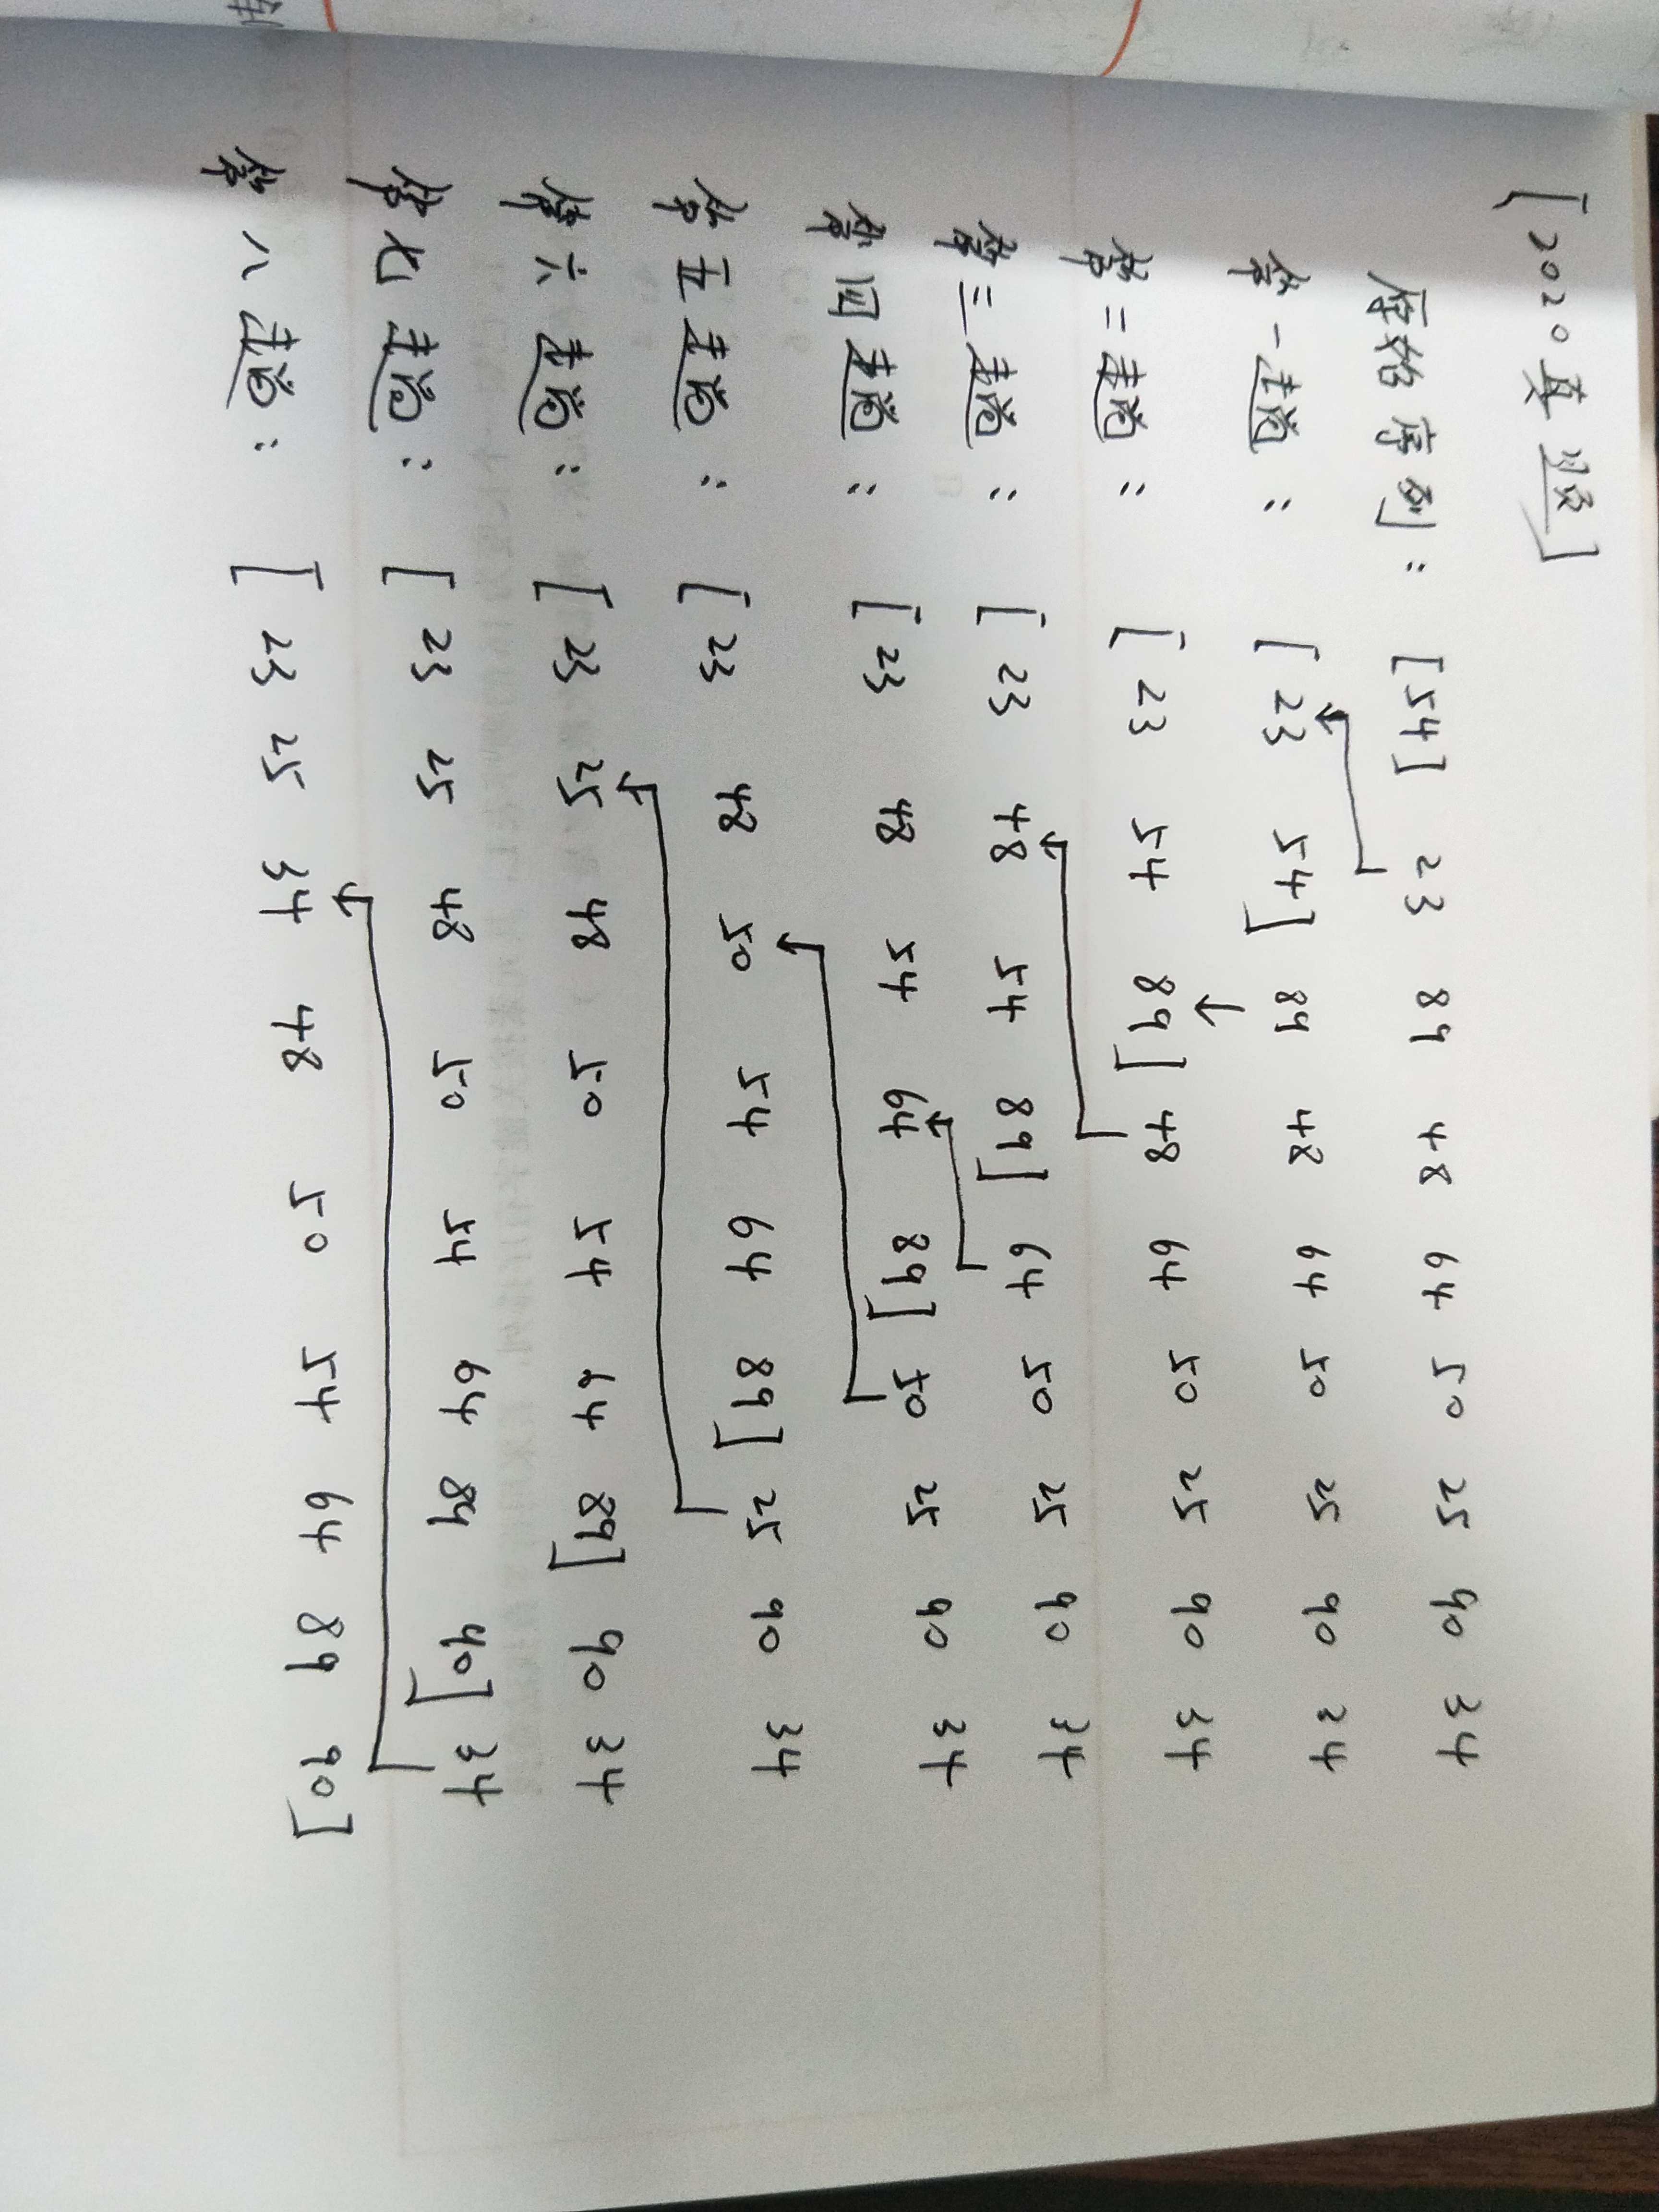 [2020真题]
原始序列: [54] 23 89 48 64 50 25 90 34
第一趟: [23 54] 89 48 64 50 25 90 34
第二趟: [23 54 89] 48 64 50 25 90 34
第三趟: [23 48 54 89] 64 50 25 90 34
第四趟: [23 48 54 64 89] 50 25 90 34
第五趟: [23 48 50 54 64 89] 25 90 34
第六趟: [23 25 48 50 54 64 89] 90 34
第七趟: [23 25 48 50 54 64 89 90] 34
第八趟: [23 25 34 48 50 54 64 89 90]